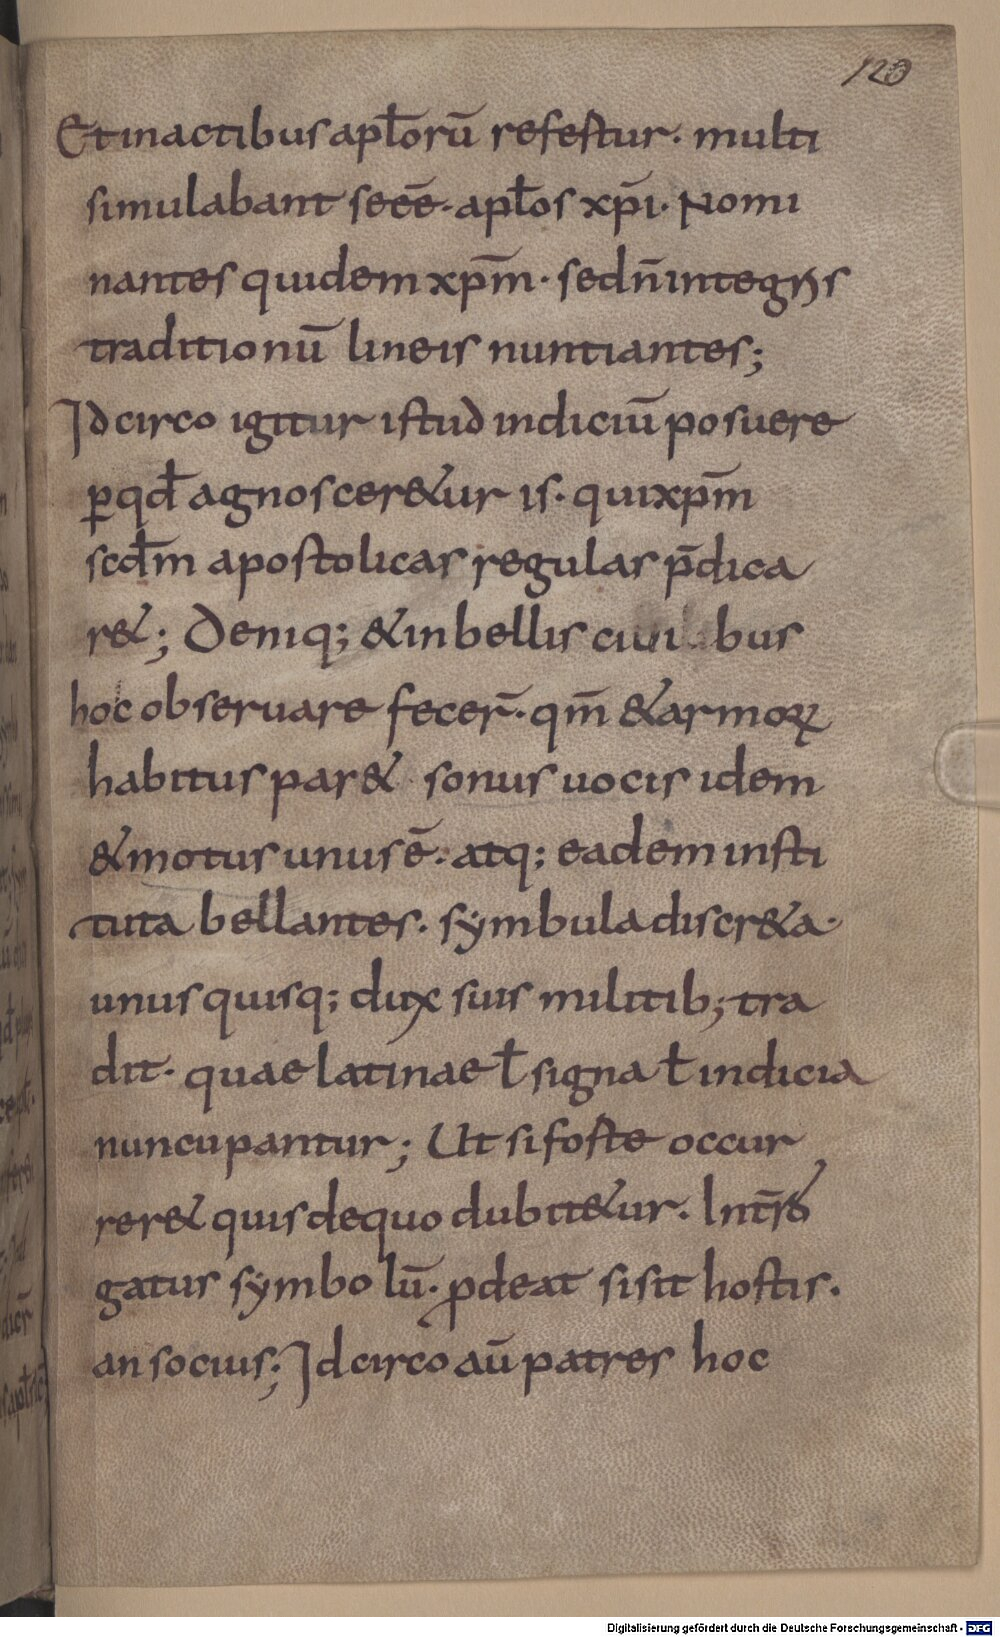 120
Et in actibus apl̄orū refestur · multi
simulabant se eē · apl̄os xp̄i · Nomi
nantes quidem xp̄m · sed n̄ integris
traditionū lineis nuntiantes;
Idcirco igitur istud indiciū posuere
ꝑ qd̄ agnosceret&ur is · qui xp̄m
scd̄m apostolicas regulas p̄dica
r&; Deniq; & in bellis ciui bus
hoc obseruare fecer̄ · qm̄ & armoꝝ
habitus par & sonus uocis idem
& motus unus ē · atq; eadem insti
tuta bellantes · sẏmbula discr&a ·
unus quisq; dux suis militib; tra
dit · quae latinae ł signa ł indicia
nuncupantur; Ut si foste occur
rer& quis de quo dubit&ur · Int̄ro
gatus sẏmbolū · ꝓdeat si sit hostis ·
an socius; Idcirco aū patres hoc
Digitalisierung gefördert durch die Deutsche Forschungsgemeinschaft - DFG